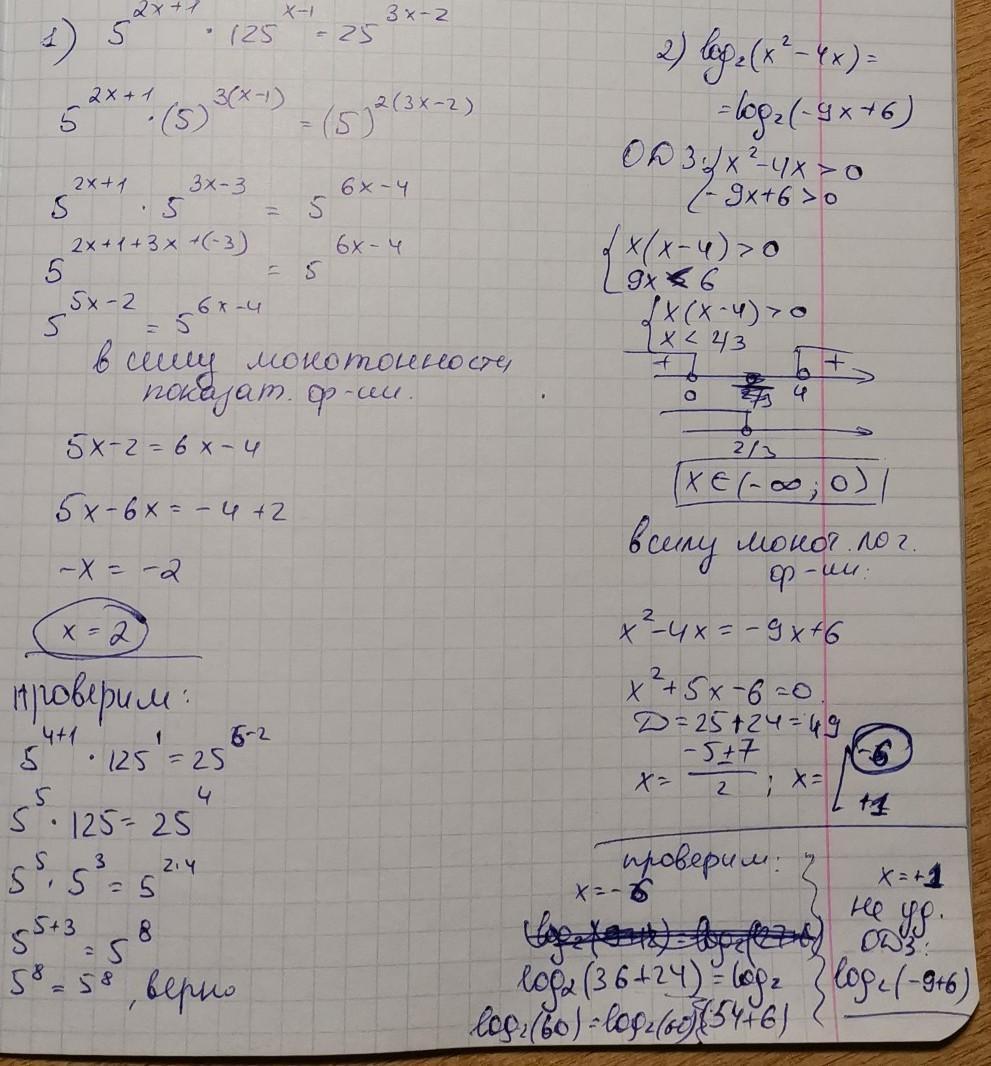 1) 5^(2x+1) · 125^(x-1) = 25^(3x-2)
5^(2x+1) · (5)^(3(x-1)) = (5)^(2(3x-2))
5^(2x+1) · 5^(3x-3) = 5^(6x-4)
5^(2x+1+3x+(-3)) = 5^(6x-4)
5^(5x-2) = 5^(6x-4)
в силу монотонности
показат. ф-ии.
5x-2=6x-4
5x-6x=-4+2
-x = -2
x=2
проверим:
5^(4+1) · 125^1 = 25^(6-2)
5^5 · 125 = 25^4
5^5 · 5^3 = 5^(2·4)
5^(5+3) = 5^8
5^8 = 5^8, верно
2) log₂(x²-4x)=
=log₂(-9x+6)
ОДЗ: { x²-4x>0
{ -9x+6>0
{ x(x-4)>0
{ 9x < 6
{ x(x-4)>0
{ x < 2/3
+ +
0 4
2/3
x∈(-∞; 0)
в силу монот. лог.
ф-ии:
x²-4x=-9x+6
x²+5x-6=0
D=25+24=49
x= (-5±7)/2 ; x= [ -6
+1
проверим:
x=-6
log₂(36+24)=log₂
(54+6)
log₂(60)=log₂(60)
x=+1
не уд.
ОДЗ:
log₂(-9+6)